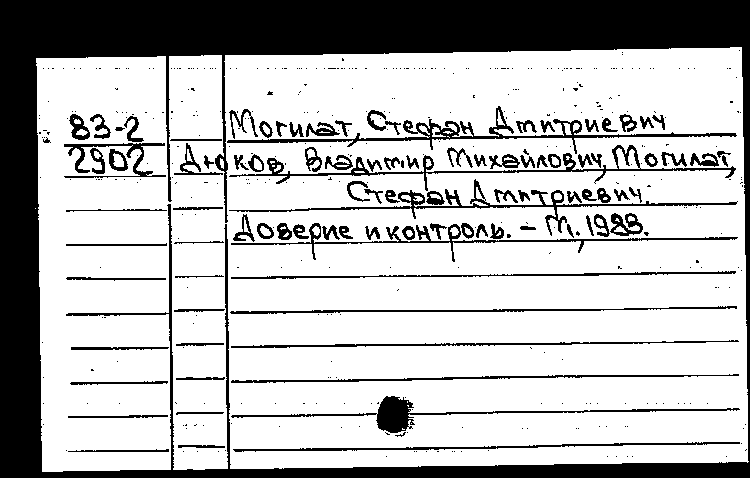 83-2 Могилат, Стефан Дмитриевич
2902 Дюков, Владимир Михайлович, Могилат,
Стефан Дмитриевич.
Доверие и контроль. – М., 1983.